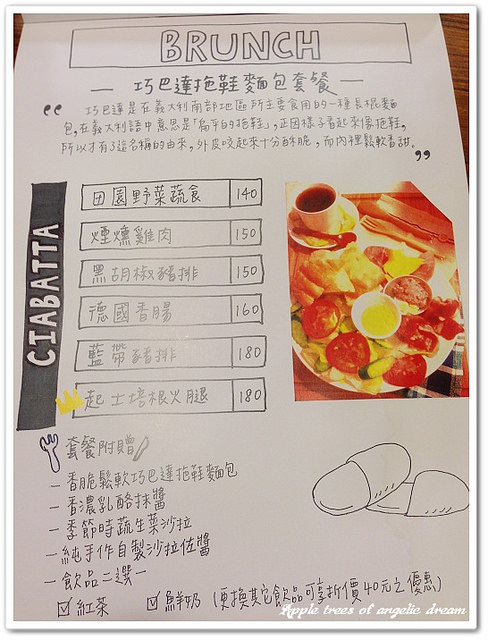 BRUNCH
— 巧巴達拖鞋麵包套餐 —
“ 巧巴達是在義大利南部地區所主要食用的一種長棍麵
包,在義大利語中意思是「扁平的拖鞋」,正因樣子看起來像拖鞋,
所以才有了這名稱的由來,外皮咬起來十分酥脆,而內裡鬆軟香甜. ”
CIABATTA
田園野菜蔬食 140
煙燻雞肉 150
黑胡椒豬排 150
德國香腸 160
藍帶豬排 180
起士培根火腿 180
套餐附贈
— 香脆鬆軟巧巴達拖鞋麵包
— 香濃乳酪抹醬
— 季節時蔬生菜沙拉
— 純手作自製沙拉佐醬
— 飲品二選一
☑ 紅茶 ☑ 鮮奶 (更換其它飲品可享折價40元之優惠)
Apple trees of angelic dream